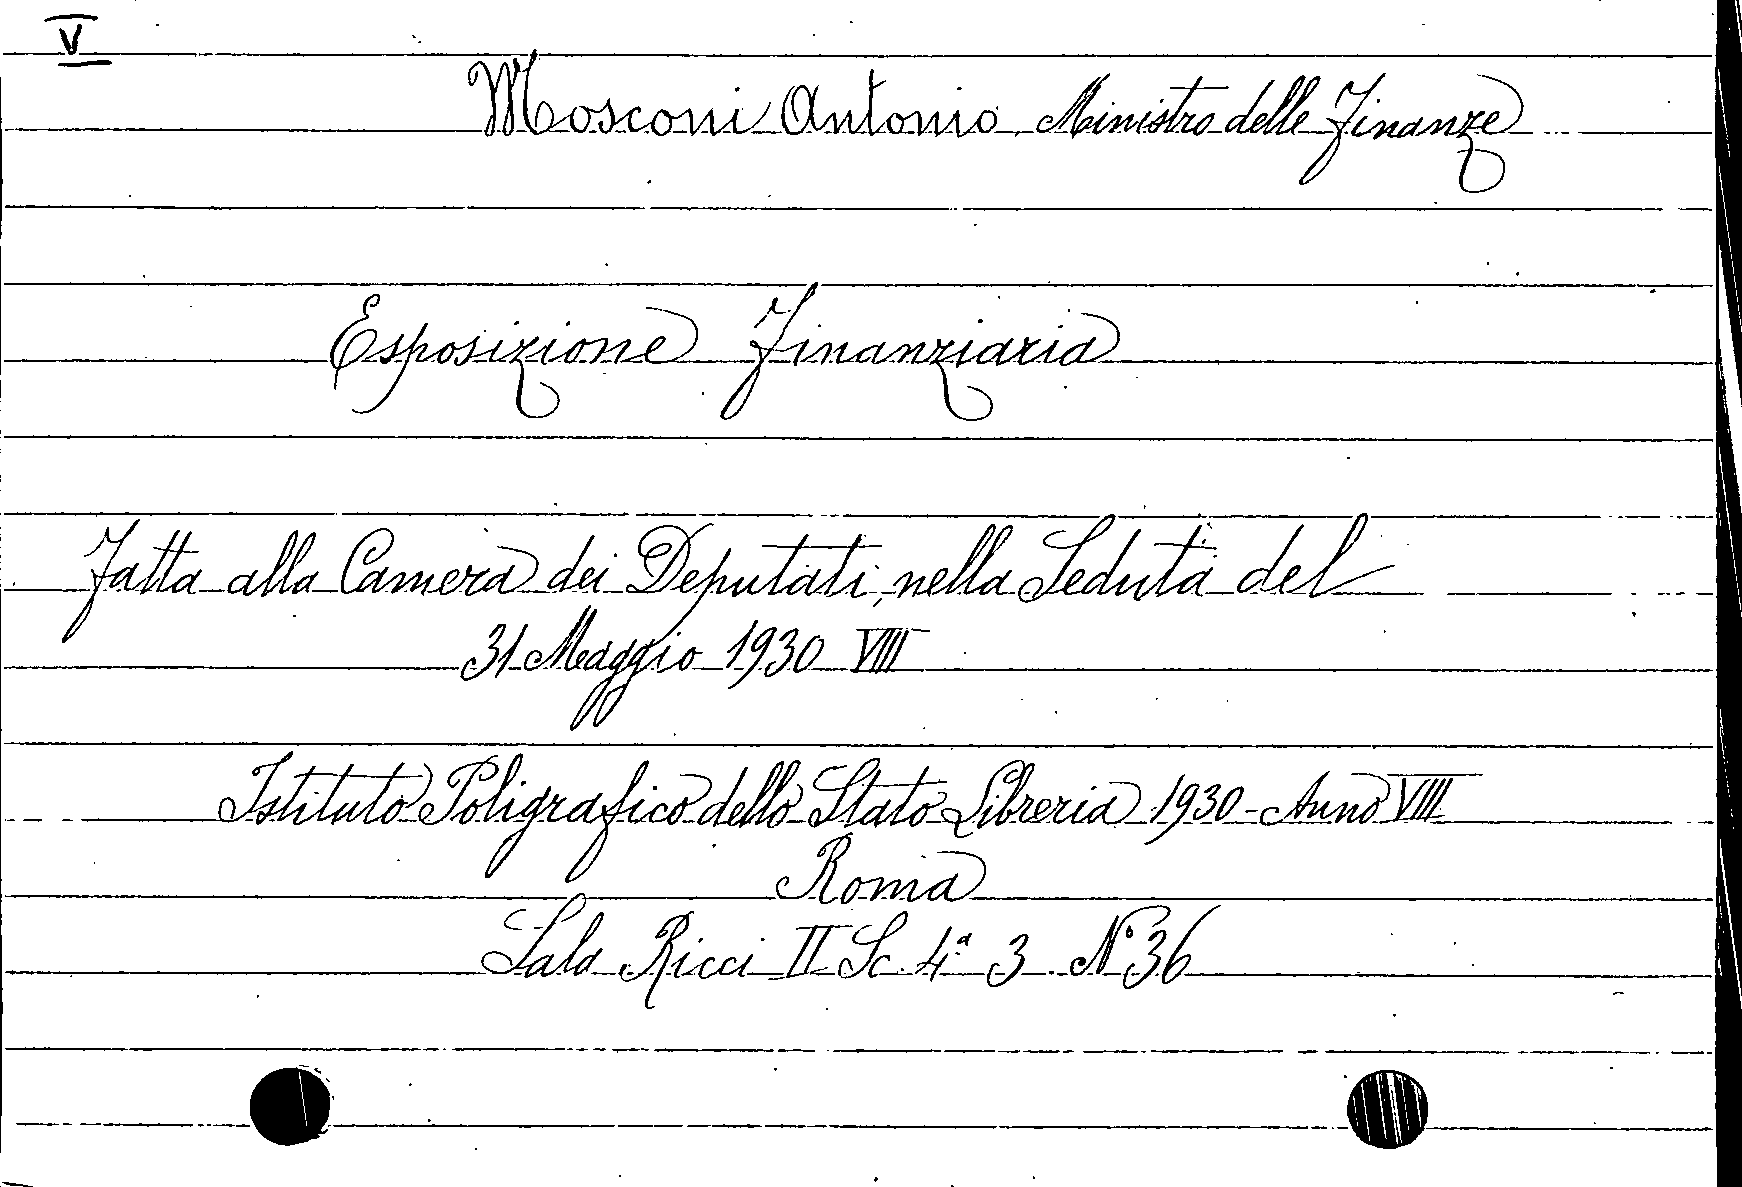 V
Mosconi Antonio Ministro delle Finanze
Esposizione Finanziaria
Fatta alla Camera dei Deputati, nella Seduta del
31 Maggio 1930 VIII
Istituto Poligrafico dello Stato Libreria 1930 - Anno VIII
Roma
Sala Ricci II Sc. 4ª 3 N° 36